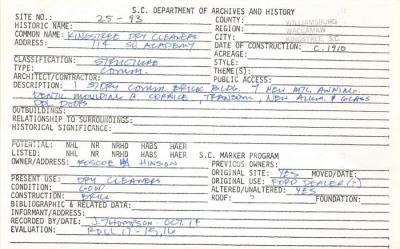 S.C. DEPARTMENT OF ARCHIVES AND HISTORY
SITE NO.: 25-93 COUNTY: WILLIAMSBURG
HISTORIC NAME: REGION: WACCAMAW
COMMON NAME: KINGSTREE DRY CLEANERS CITY: KINGSTREE, SC
ADDRESS: 114 SO ACADEMY DATE OF CONSTRUCTION: C. 1910
ACREAGE:
CLASSIFICATION: STRUCTURE STYLE:
TYPE: COMM. THEME(S):
ARCHITECT/CONTRACTOR: PUBLIC ACCESS:
DESCRIPTION: 1 STORY COMM. BRICK BLDG. w/ NEW MTL AWNING.
DENTIL MOULDING @ CORNICE, TRANSOM, NEW ALUM. & GLASS
DBL DOORS
OUTBUILDINGS:
RELATIONSHIP TO SURROUNDINGS:
HISTORICAL SIGNIFICANCE:
POTENTIAL: NHL NR NRHD HABS HAER
LISTED: NHL NR NRHD HABS HAER S.C. MARKER PROGRAM
OWNER/ADDRESS: ROSCOE HINSON PREVIOUS OWNERS:
ORIGINAL SITE: YES MOVED/DATE:
PRESENT USE: DRY CLEANERS ORIGINAL USE: FORD DEALER (?)
CONDITION: GOOD ALTERED/UNALTERED: YES
CONSTRUCTION: BRICK ROOF: ? FOUNDATION:
BIBLIOGRAPHIC & RELATED DATA:
INFORMANT/ADDRESS:
RECORDED BY/DATE: J. THOMPSON - OCT.
EVALUATION: ROLL 17-15,16